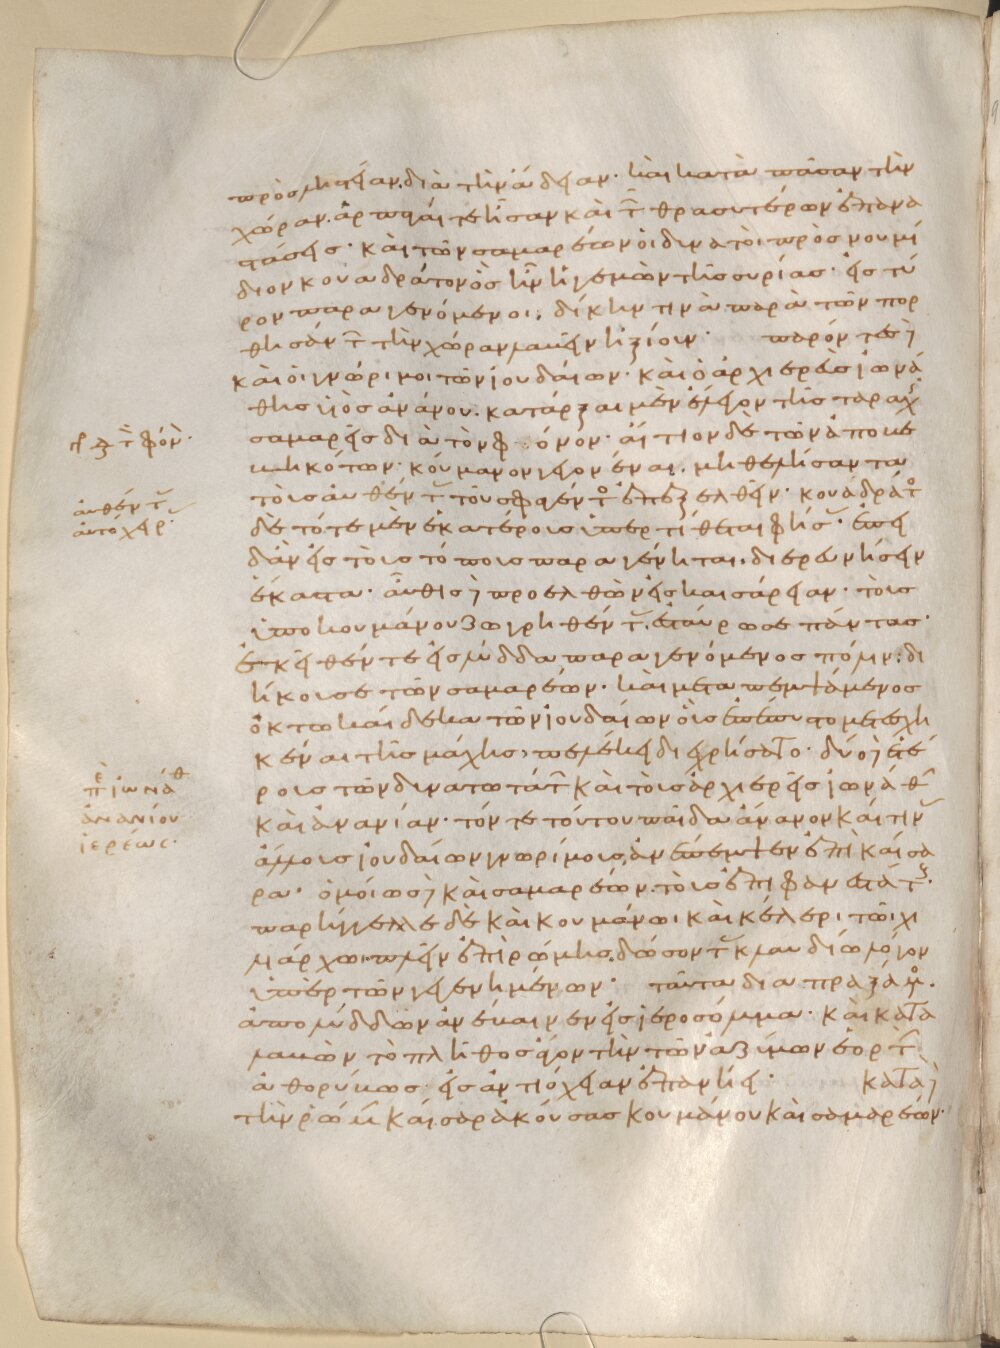 πρὸς ληστείαν. διὰ τὴν ἄδειαν. καὶ κατὰ πᾶσαν τὴν
χώραν. ἁρπαγαί τε ἦσαν καὶ τῶν θρασυτέρων ἐπανα
στάσεις. καὶ τῶν σαμαρέων οἱ δυνατοὶ πρὸς νουμί
διον κουαδράτον ὃς ἦν ἡγεμὼν τῆς συρίας. εἰς τύ
ρον παραγενόμενοι, δίκην τινὰ παρὰ τῶν πορ
θησάντων τὴν χώραν λαβεῖν ἠξίουν. παρόντες δὲ
καὶ οἱ γνώριμοι τῶν ἰουδαίων. καὶ ὁ ἀρχιερεὺς ἰωνά
θης υἱὸς ἀνάνου. κατάρξαι μὲν ἔλεγον τῆς ταραχῆς
σαμαρεῖς διὰ τὸν φόνον. αἴτιον δὲ τῶν ἀποβε
βηκότων. κούμανον γεγονέναι. μὴ θελήσαντα
τοῖς αὐθένταις τοῦ σφαγέντος ἐπεξελθεῖν. κουάδρατος
δὲ τότε μὲν ἑκατέρους ὑπερτίθεται φήσας. ἐπει
δὰν εἰς τοὺς τόπους παραγένηται. διερευνήσειν
ἕκαστα. αὖθις δὲ προελθὼν εἰς καισάρειαν. τοὺς
ὑπὸ κουμάνου ζωγρηθέντας, ἐσταύρωσε πάντας.
ἐκεῖθέν τε εἰς λύδδα παραγενόμενος πάλιν. δι
ήκουσε τῶν σαμαρέων. καὶ μεταπεμψάμενος
ὀκτωκαίδεκα τῶν ἰουδαίων οὓς ἐπέπυστο μετεσχη
κέναι τῆς μάχης, πελέκει διεχρήσατο. δύο δὲ ἑτέ
ρους τῶν δυνατωτάτων καὶ τοὺς ἀρχιερεῖς ἰωνάθην
καὶ ἀνανίαν. τόν τε τούτου παῖδα ἄνανον καί τινας
ἄλλους ἰουδαίων γνωρίμους, ἀνέπεμψεν ἐπὶ καίσα
ρα. ὁμοίως δὲ καὶ σαμαρέων. τοὺς ἐπιφανεστάτους.
παρήγγειλε δὲ καὶ κουμάνωι καὶ κέλερι τῶι χι
λιάρχωι πλεῖν ἐπὶ ῥώμης, δώσοντας κλαυδίω λόγον
ὑπὲρ τῶν γεγενημένων. ταῦτα διαπραξάμενος.
ἀπὸ λύδδων ἀνέβαινεν εἰς ἱεροσόλυμα. καὶ κατα
λαβὼν τὸ πλῆθος ἄγον τὴν τῶν ἀζύμων ἑορτὴν
ἀθορύβως. εἰς ἀντιόχειαν ἐπανήει. κατὰ δὲ
τὴν ῥώμην καίσαρ ἀκούσας κουμάνου καὶ σαμαρέων.
αὐθένται
αὐτόχειρ
ἰωνάθ
ἀνανίου
ἱερέως.